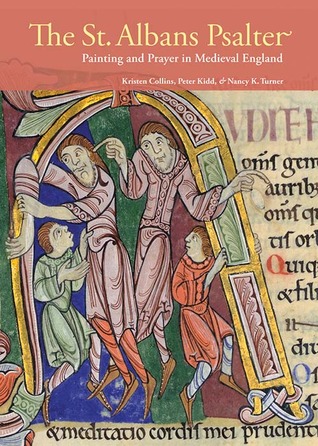 The St. Albans Psalter
Painting and Prayer in Medieval England
Kristen Collins, Peter Kidd, & Nancy K. Turner
UDIEH
oms̄ gen
aurib
oms̄ q
tis orb
Quiq
& fili
& meditatio cordis mei prudent